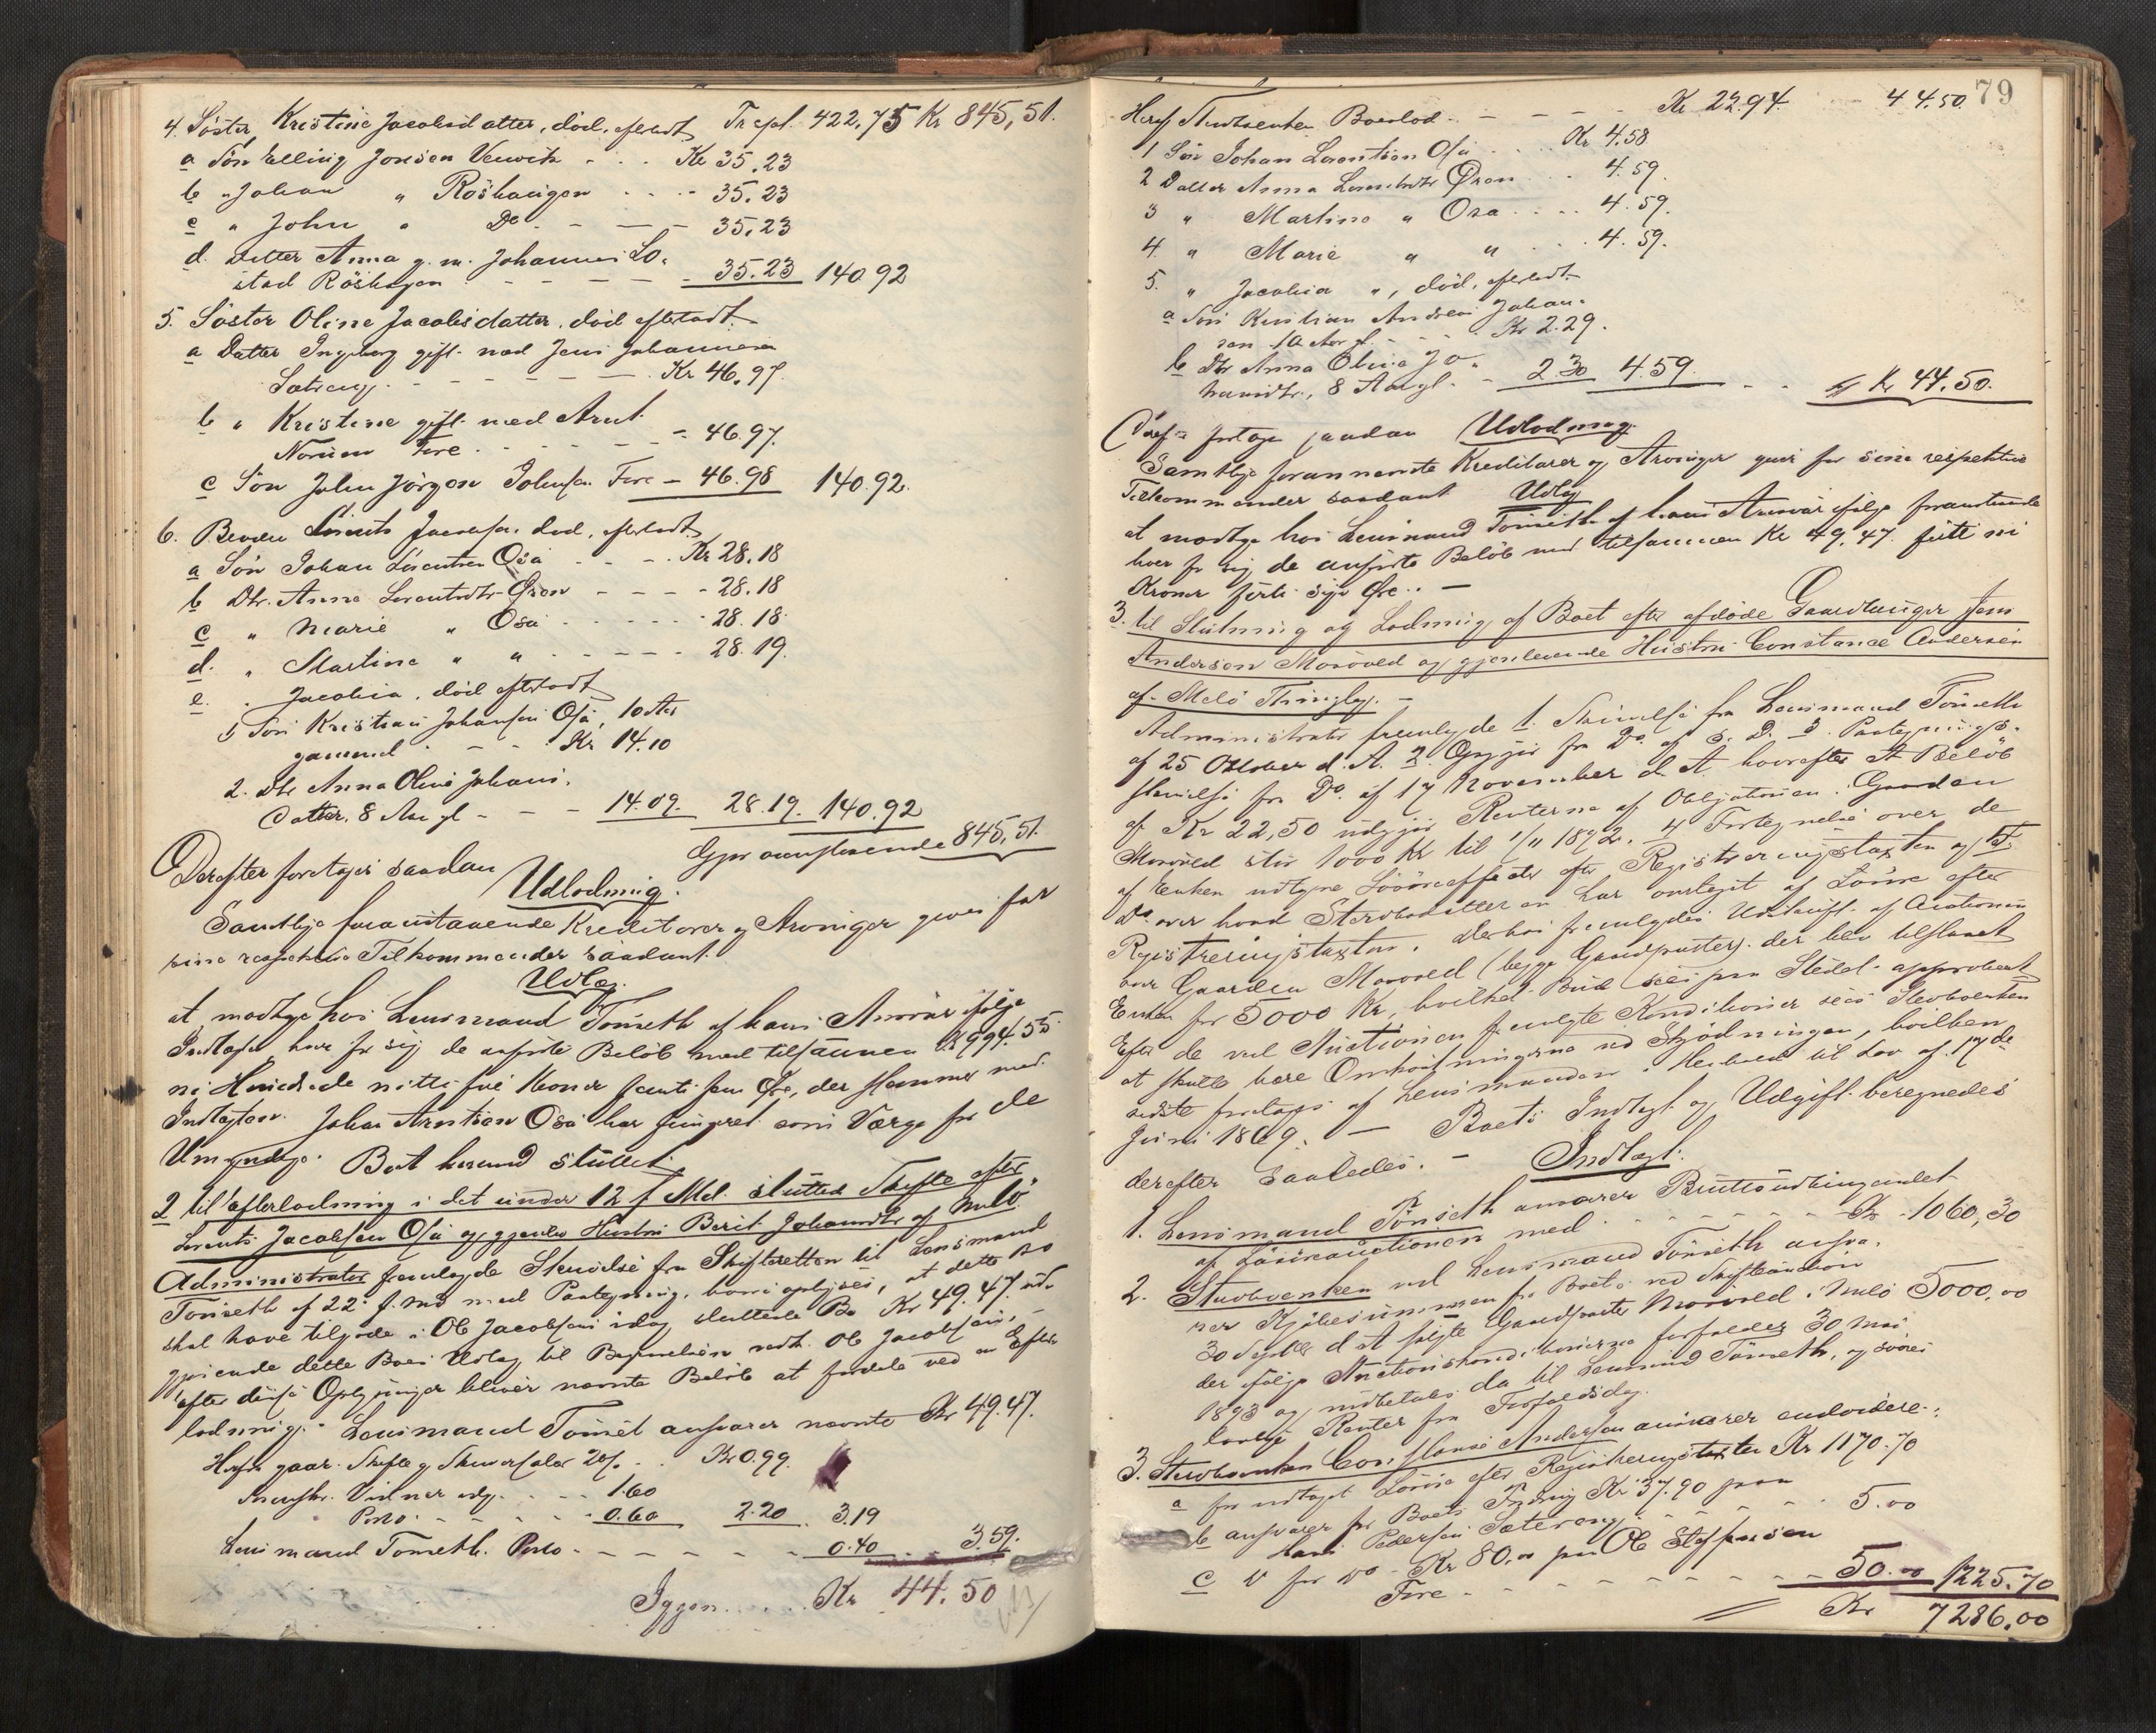 4. Söster Kristine Jacobsdatter, död, efterladt Trspt. 422,75 Kr 845,51.
a Sön Elling Jonsen Vevik - - - Kr 35.23
b " Johan " Röshaugen - - - - 35.23
c " John " Do - - - - 35.23
d. Datter Anna g. m. Johannes So-
stad Röshagen - - - - - 35.23 140.92
5. Söster Oline Jacobsdatter, död efterladt
a Datter Ingeborg gift med Jens Johannesen
Satrang - - - - - - Kr 46.97.
b " Kristine gift med Arnt
Fire - - - - - 46.97.
c Sön John Jörgen Johnsen Fire - 46.98 140.92.
6. Broder Lorents Jacobsen, död, efterladt
a Sön Johan Lorentsen Oså - - - Kr 28.18
b Dtr. Anna Lorentsdtr Öxen - - - - 28.18
c " Marie " Oså - - - - - - 28.18
d. " Martine " " - - - - - 28.19.
e. " Jacobia, död efterladt
1 Sön Kristian Johansen Oså, 10 Aar
gammel - - - Kr 14.10
2. Dtr Anna Oline Johans-
datter, 8 Aar gl - - - 14.09. 28.19. 140.92
Gjør ovenstaaende 845,51.
Derefter foretages saadan
Udlodning.
Samtlige foranstaaende Kreditorer og Arvinger gives for
sine respektive Tilkommender saadant
Udlæg.
at modtage hos Lensmand Tönseth af hans Ansvar ifølge
Indtægten, hver for sig de anførte Beløb med tilsammen Kr 994.55.
ni Hundrede nitti fire Kroner femti fem Øre, der stemmer med
Indtægten. Johan Arntsen Oså har fungeret som Værge for de
Umyndige. Boet hermed sluttet.
2 til Efterlodning i det under 12 f. Md. sluttede Skifte efter
Lorents Jacobsen Oså og gjenlev. Hustru Berit Johannsdtr af Melö.
Administrator fremlagde Skrivelse fra Skifteretten til Lensmand
Tönseth af 22 f. Md med Paategning, hvori oplyses, at dette Bo
skal have tilgode i Ole Jacobsens idag sluttede Bo Kr 49.47. ud-
gjørende dette Boes Udlæg til Begravelsen vedk. Ole Jacobsen,
efter disse Oplysninger bliver nævnte Beløb at fordele ved en Efter-
lodning. Lensmand Tönseth ansvarer nævnte Kr 49.47.
Herfra gaar Skifte og Skriversalær 2% - - Kr 0.99.
Vidner udg. - - - 1.60
Porto - - - - - 0.60 2.20 3.19
Lensmand Tönseth. Porto - - - - - - 0.40 - - 3.59.
Igjen - - - Kr 44.50

79
Heraf Boeslod - - - - - Kr 22.94. - - 44.50
1 Sön Johan Lorentsen Oså - - - Kr 4.58
2 Datter Anna Lorentsdtr Öxen - - - 4.59.
3 " Martine " Osa - - - - 4.59.
4. " Marie " " - - - 4.59.
5. " Jacobia ", död, efterladt
a Sön Kristian Andreas Johan-
sen 10 Aar gl. - - - Kr 2.29.
b Dtr Anna Oline Jo-
hansdtr., 8 Aar gl. - - 2.30 4.59. - - Kr 44.50.
Derefter foretages saadan Udlodning.
Samtlige forannævnte Kreditorer og Arvinger gives for sine respektive
Tilkommender saadant Udlæg
at modtage hos Lensmand Tönseth af hans Ansvar ifølge foranstaaende
hver for sig de anførte Beløb med tilsammen Kr 49.47. fyrti ni
Kroner fyrti syv Øre. -
3. til Slutning og Lodning af Boet efter afdøde Gaardbruger Jens
Andersen Morvold og gjenlevende Hustru Constance Andersen
af Melö Thinglag. -
Administrator fremlagde 1. Skrivelse fra Lensmand Tönseth
af 25 Oktober d. A. 2. Opgjør fra Do af s. D. 3. Paategnings-
skrivelse fra Do. af 17 November d. A. hvorefter et Beløb
af Kr 22,50 udgjør Renterne af Obligationen. Gaarden
Morvold stor 1000 Kr til 1/11 1892. 4 Fortegnelse over de
af Enken udtagne Løsøreeffecter efter Registreringstaxten og 5.
Do over hvad Stervbodatteren har overtaget af Løsøre efter
Registreringstaxten. Derhos fremlagdes Udskrift af Auctionen
over Gaarden Morvold (begge Gaardparter) der blev tilslaaet
Enken for 5000 Kr, hvilket Bud sees paa Stedet approberet
Efter de ved Auctionen fremlagte Konditioner sees Stervboenken
at skulle bære Omkostningerne ved Skjødningen, hvilken
sidste foretages af Lensmanden i Henhold til Lov af 17de
Juni 1869. - Boets Indtægt og Udgift beregnedes
derefter saaledes. - Indtægt.
1. Lensmand Tönseth ansvarer Bruttoudbringendet
af Løsøreauctionen med - - - - - - Kr 1060,30
2. Stervboenken ved Lensmand Tönseth ansva-
rer Kjøbesummen for Boets ved Skifteauction
30 Septbr d. A solgte Gaardparter Morvold i Melö 5000,00
der ifølge Auctionskonditionerne forfalder 30 Mai
1893 og indbetales da til Lensmand Tönseth, og svares
lovlige Renter fra Forfaldsdag.
3. Stervboenken Constance Andersen ansvarer endvidere:
a for udtaget Løsøre efter Registreringstaxten Kr 1170.70
b ansvarer for Boets Fordring Kr 37.90 paa
Hans Pedersen Saterang - - - - - 5.00
c " for Do - Kr 80.00 paa Ole Steffensen
Fire - - - - - - - - - 50.00 1225.70
Kr 7286.00